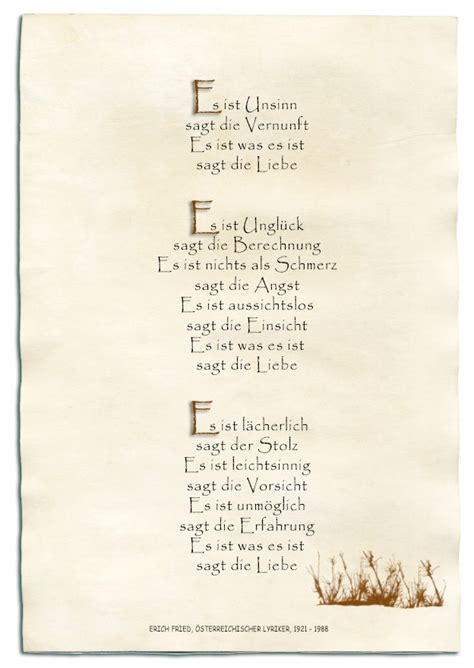 Es ist Unsinn
sagt die Vernunft
Es ist was es ist
sagt die Liebe
Es ist Unglück
sagt die Berechnung
Es ist nichts als Schmerz
sagt die Angst
Es ist aussichtslos
sagt die Einsicht
Es ist was es ist
sagt die Liebe
Es ist lächerlich
sagt der Stolz
Es ist leichtsinnig
sagt die Vorsicht
Es ist unmöglich
sagt die Erfahrung
Es ist was es ist
sagt die Liebe
ERICH FRIED, ÖSTERREICHISCHER LYRIKER, 1921 - 1988